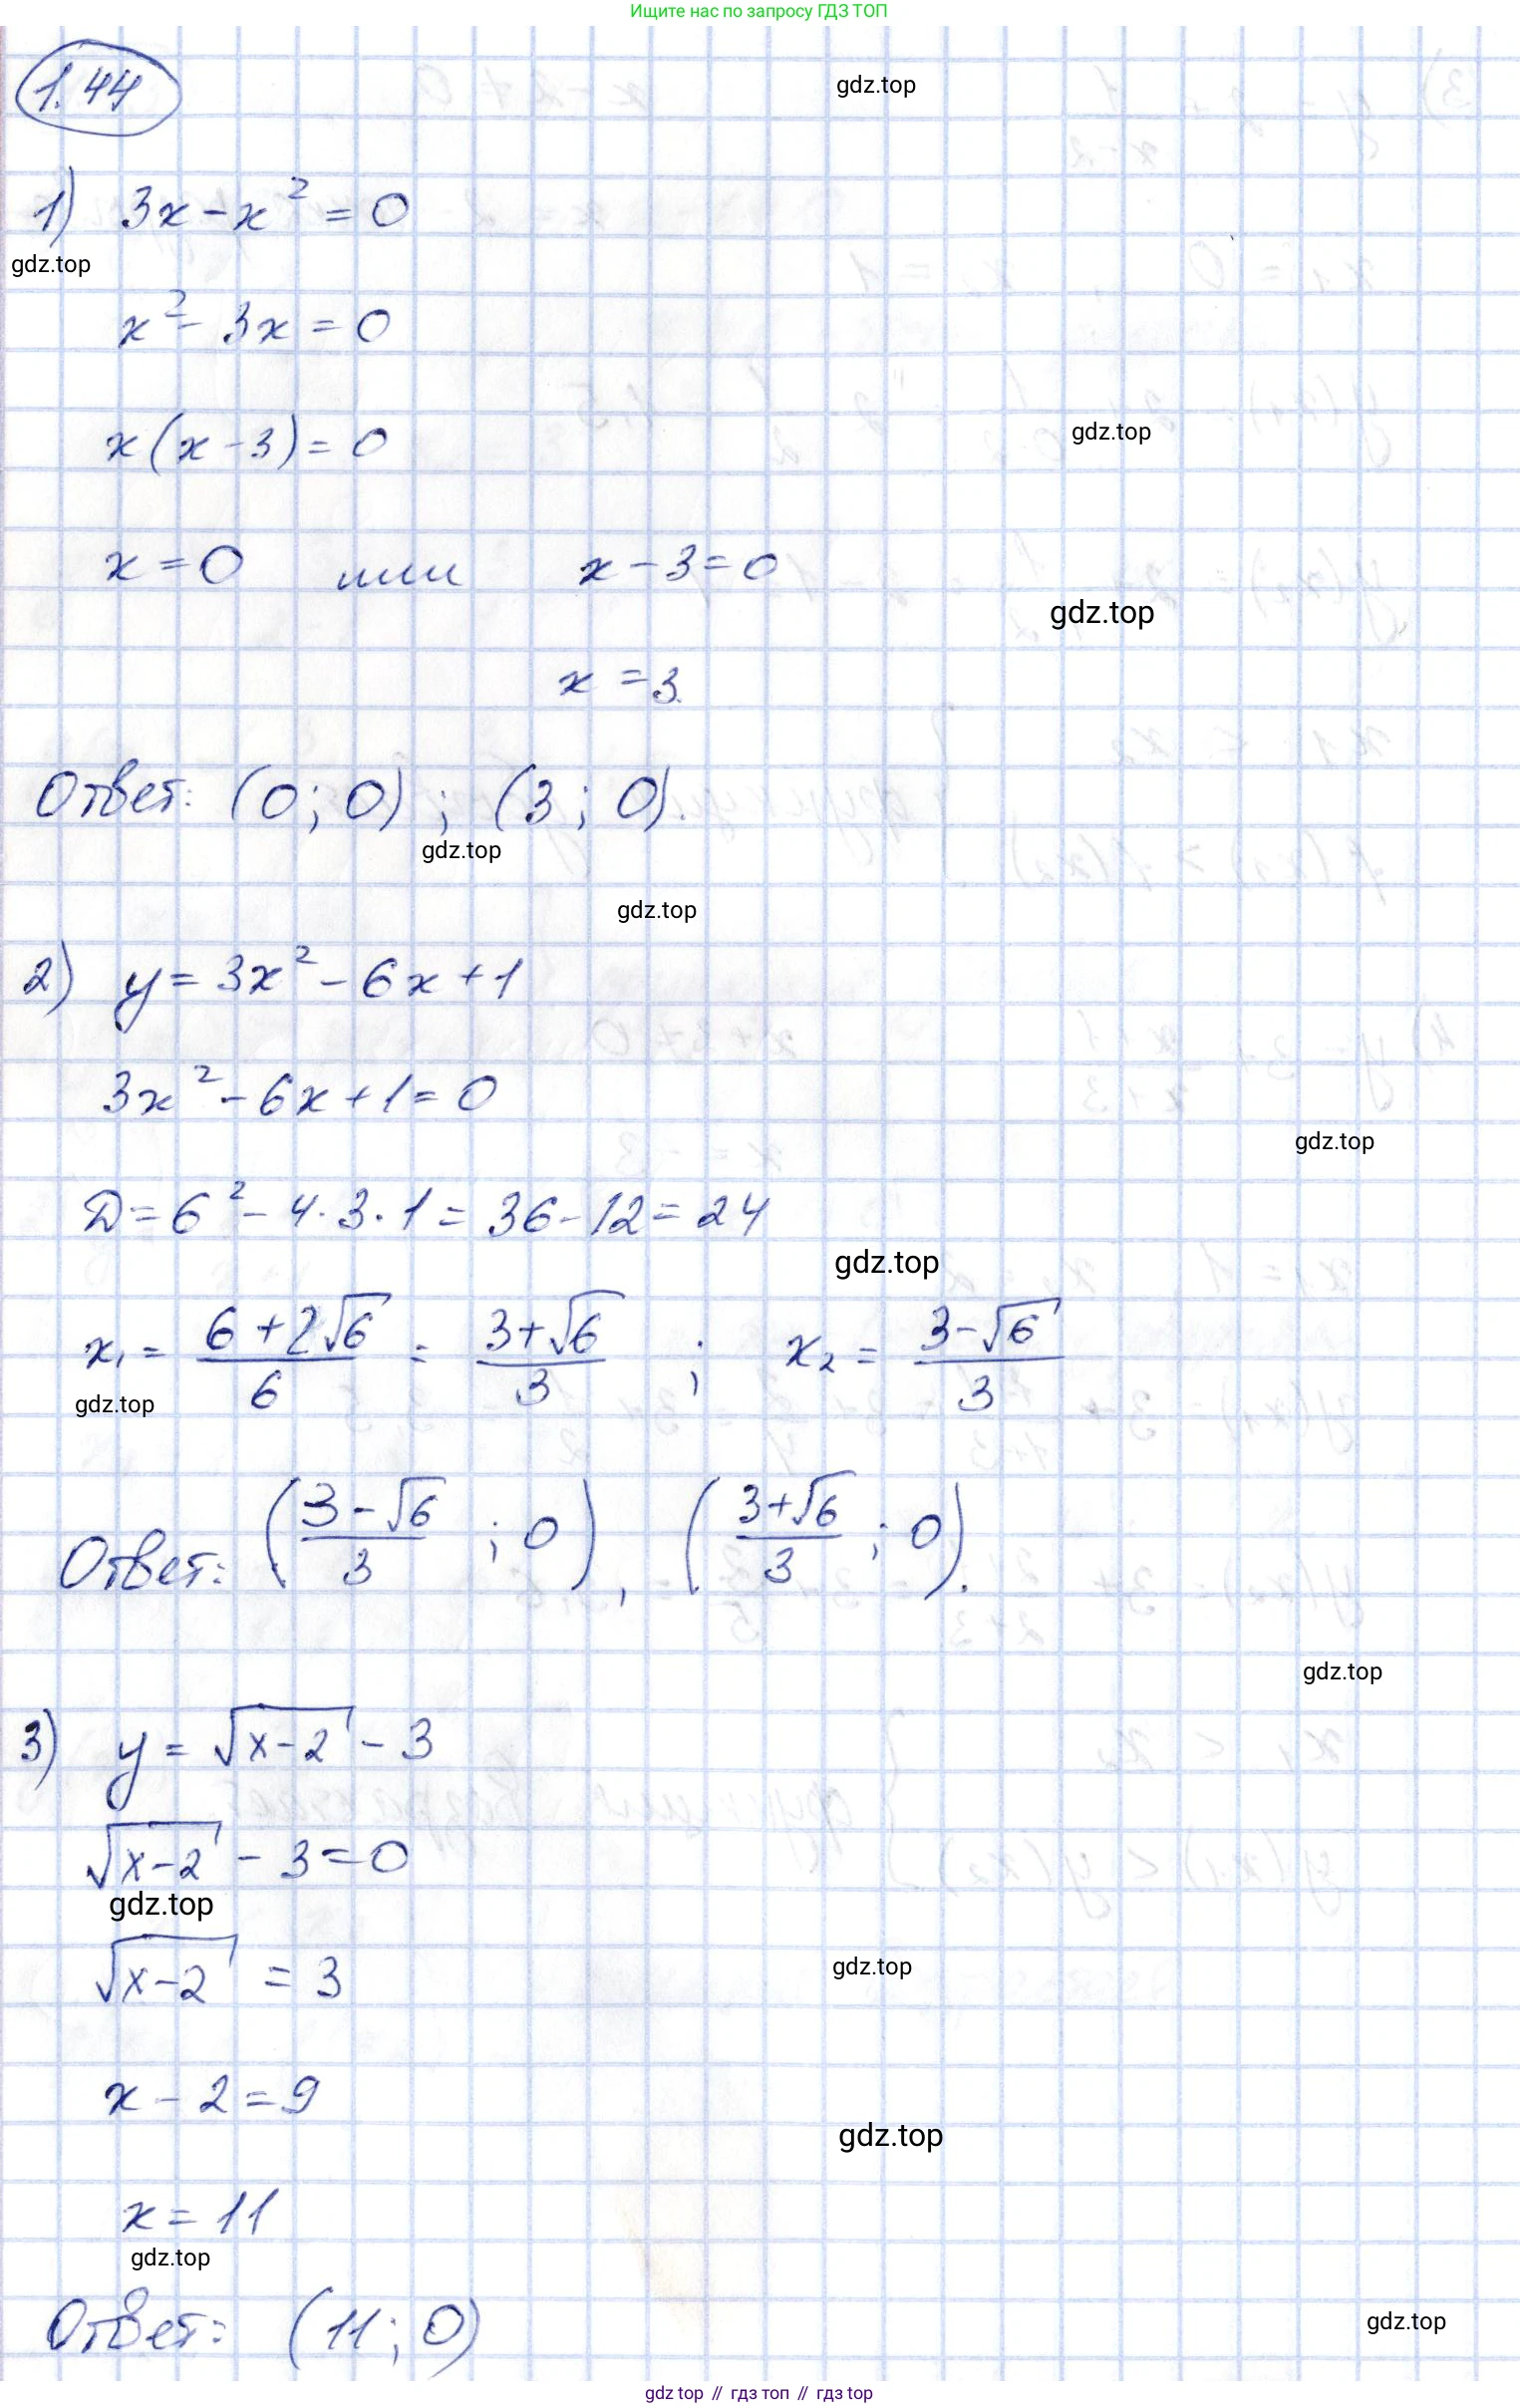 Ищите нас по запросу ГДЗ ТОП
1.44
gdz.top
1) 3x - x² = 0
gdz.top
x² - 3x = 0
x(x - 3) = 0
gdz.top
x = 0 или x - 3 = 0
gdz.top
x = 3
Ответ: (0; 0); (3; 0).
gdz.top
gdz.top
2) y = 3x² - 6x + 1
3x² - 6x + 1 = 0
gdz.top
D = 6² - 4·3·1 = 36 - 12 = 24
gdz.top
x₁ = (6 + 2√6)/6 = (3 + √6)/3 ; x₂ = (3 - √6)/3
gdz.top
Ответ: ((3 - √6)/3 ; 0), ((3 + √6)/3 ; 0).
gdz.top
3) y = √(x-2) - 3
√(x-2) - 3 = 0
gdz.top
gdz.top
√(x-2) = 3
x - 2 = 9
gdz.top
x = 11
gdz.top
Ответ: (11; 0)
gdz.top
gdz top // гдз топ // гдз top